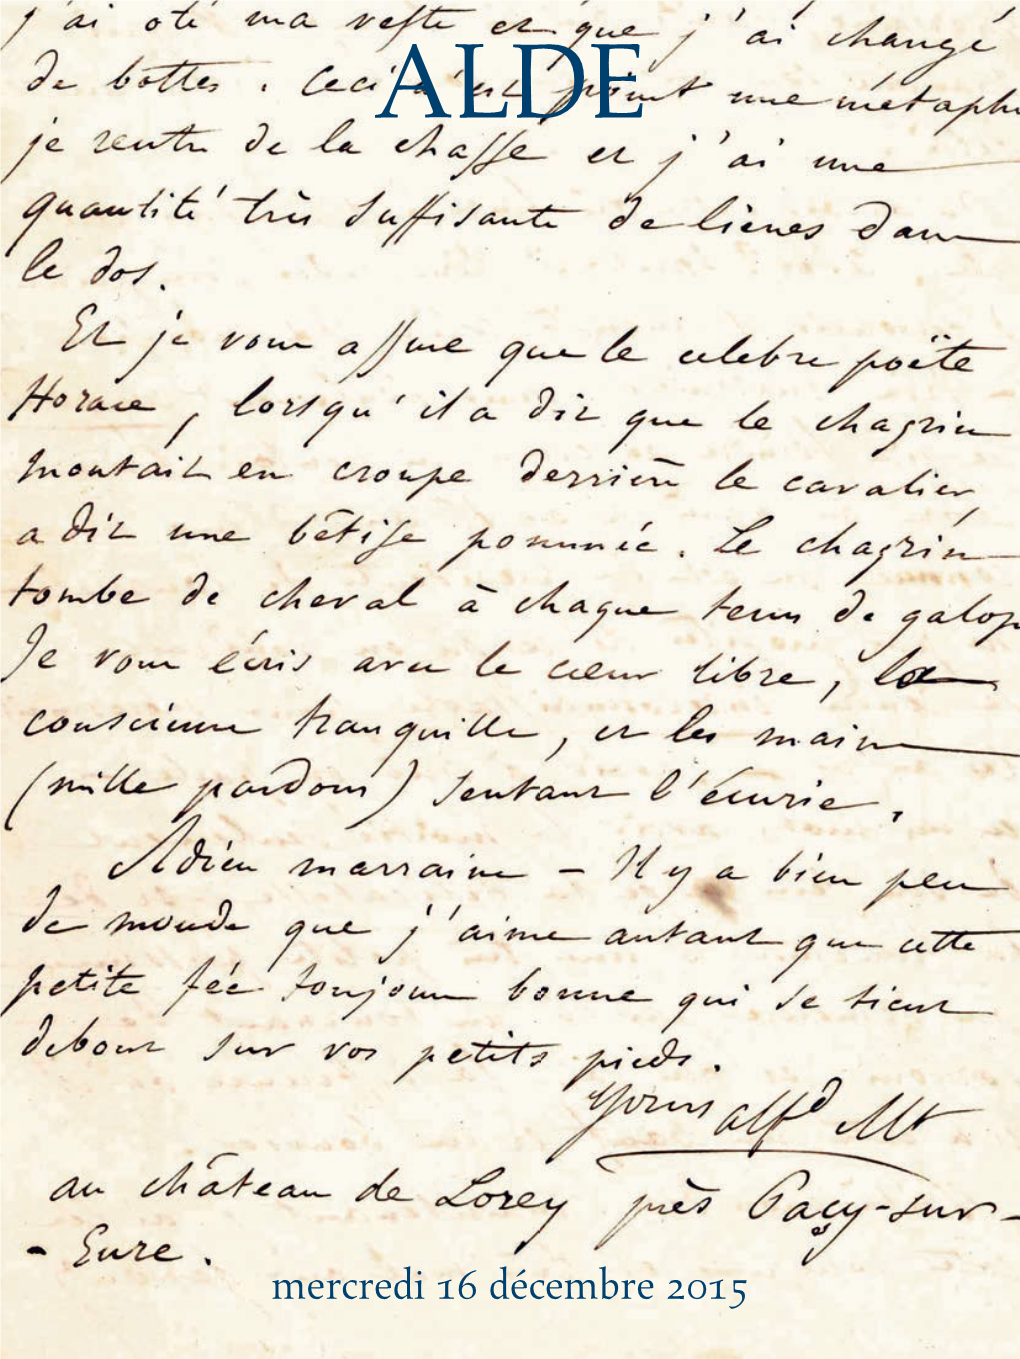 j'ai oté ma veste et que j'ai changé
ALDE
de bottes. Ceci n'est point une métaph
je rentre de la chasse et j'ai une
quantité très suffisante de lièues dans
le dos.
Et je vous assure que le celebre poëte
Horace, lorsqu'il a dit que le chagrin
montait en croupe derrière le cavalier,
a dit une bêtise pommée. Le chagrin
tombe de cheval à chaque tems de galop
Je vous écris avec le cœur libre, la
conscience tranquille, et les mains
(mille pardons) sentant l'écurie.
Adieu marraine - Il y a bien peu
de monde que j'aime autant que cette
petite fée toujours bonne qui se tient
debout sur vos petits pieds.
Yours Alfd Mt
au château de Lorey près Paçy-sur-
- Eure.
mercredi 16 décembre 2015